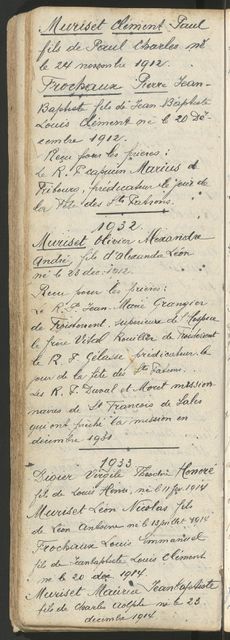 Muriset Clément Paul
fils de Paul Charles né
le 24 novembre 1912.
Frochaux Pierre Jean-
Baptiste fils de Jean Baptiste
Louis Clément né le 20 Dé
cembre 1912.
Reçu pour les prières :
Le R. P. capucin Marius de
Fribourg, prédicateur le jour de
la fête des Sts Patrons.
1932
Muriset Olivier Alexandre
André, fils d'Alexandre Léon
né le 23 déc. 1912.
Reçu pour les prières :
Le Rd Jean-Marie Grangier
de Froidemont, supérieure de l'hospice
le frère Vital Rouiller de Froidemont
le R. P. Gélase prédicateur le
jour de la fête des Sts Patrons.
Les R. P. Duval et Moret mission
naires de St François de Sales
qui ont prêché la mission en
décembre 1931
1933
Digier Virgile Théodore Honoré
fils de Louis Henri, né le 11 1914
Muriset Léon Nicolas fils
de Léon Antoine né le 13 1914
Frochaux Louis Emmanuel
fils de Jean Baptiste Louis Clément
né le 20 déc 1914.
Muriset Maurice Jean Baptiste
fils de Charles Adolphe né le 23
décembre 1914.